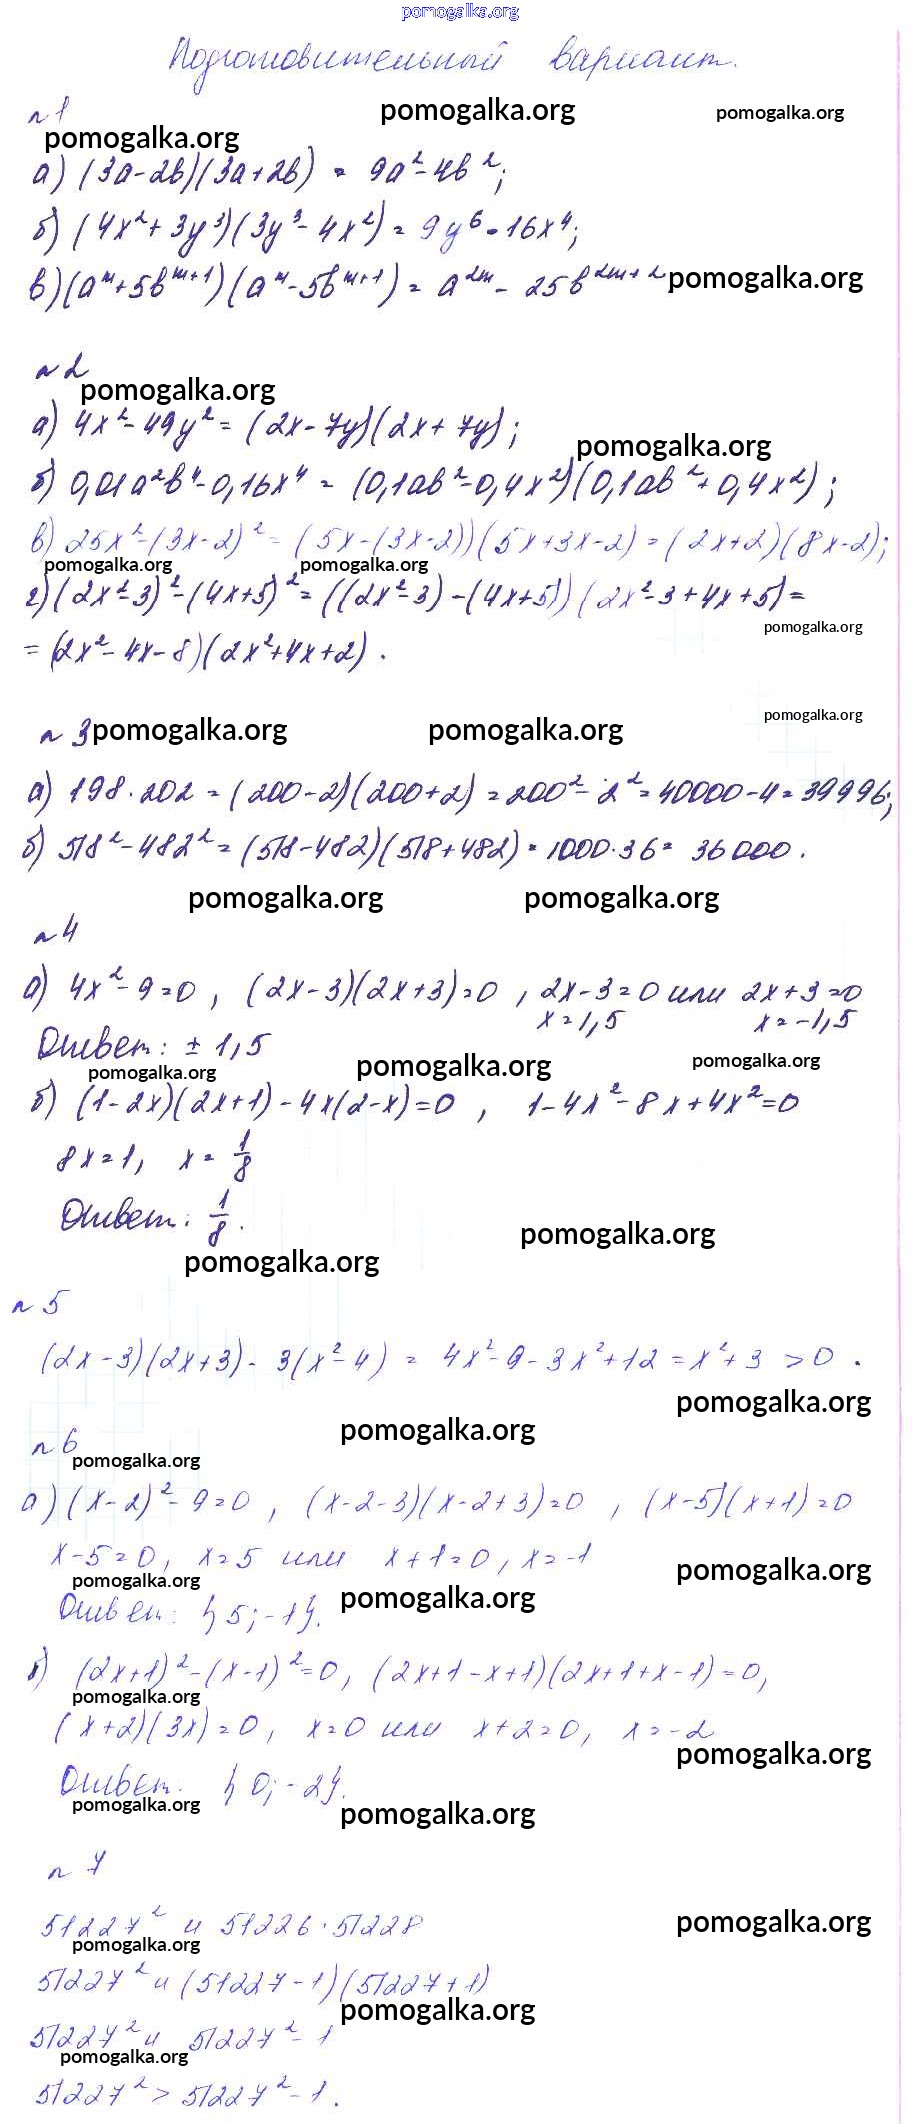 pomogalka.org
Подготовительный вариант.
n 1
pomogalka.org pomogalka.org pomogalka.org
а) (3a-2b)(3a+2b) = 9a²-4b²;
б) (4x²+3y³)(3y³-4x²) = 9y⁶-16x⁴;
в) (aᵐ+5bᵐ⁺¹)(aᵐ-5bᵐ⁺¹) = a²ᵐ - 25b²ᵐ⁺² pomogalka.org
n 2
pomogalka.org
а) 4x²-49y² = (2x-7y)(2x+7y);
pomogalka.org
б) 0,01a²b⁴-0,16x⁴ = (0,1ab²-0,4x²)(0,1ab²+0,4x²);
в) 25x²-(3x-2)² = (5x-(3x-2))(5x+3x-2) = (2x+2)(8x-2);
pomogalka.org pomogalka.org
г) (2x²-3)²-(4x+5)² = ((2x²-3)-(4x+5))(2x²-3+4x+5) =
pomogalka.org
= (2x²-4x-8)(2x²+4x+2).
pomogalka.org
n 3 pomogalka.org pomogalka.org
а) 198·202 = (200-2)(200+2) = 200²-2² = 40000-4 = 39996;
б) 518²-482² = (518-482)(518+482) = 1000·36 = 36000.
pomogalka.org pomogalka.org
n 4
а) 4x²-9=0, (2x-3)(2x+3)=0, 2x-3=0 или 2x+3=0
x=1,5 x=-1,5
Ответ: ±1,5
pomogalka.org pomogalka.org pomogalka.org
б) (1-2x)(2x+1)-4x(2-x)=0, 1-4x²-8x+4x²=0
8x=1, x=1/8
Ответ: 1/8.
pomogalka.org pomogalka.org
n 5
(2x-3)(2x+3)-3(x²-4) = 4x²-9-3x²+12 = x²+3 >0.
pomogalka.org pomogalka.org
n 6
pomogalka.org
а) (x-2)²-9=0, (x-2-3)(x-2+3)=0, (x-5)(x+1)=0
x-5=0, x=5 или x+1=0, x=-1
pomogalka.org pomogalka.org pomogalka.org
Ответ: {5;-1}.
б) (2x+1)²-(x-1)²=0, (2x+1-x+1)(2x+1+x-1)=0,
pomogalka.org
(x+2)(3x)=0, x=0 или x+2=0, x=-2
pomogalka.org
Ответ: {0;-2}.
pomogalka.org pomogalka.org
n 7
51227² и 51226·51228
pomogalka.org pomogalka.org
51227² и (51227-1)(51227+1)
pomogalka.org
51227² и 51227²-1
pomogalka.org
51227² > 51227²-1.